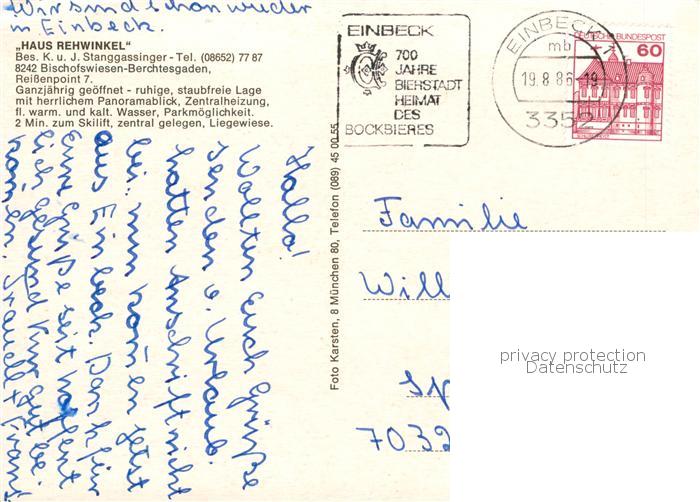 Wir sind schon wieder
in Einbeck.
„HAUS REHWINKEL"
Bes. K. u. J. Stanggassinger - Tel. (08652) 77 87
8242 Bischofswiesen-Berchtesgaden,
Reißenpoint 7.
Ganzjährig geöffnet - ruhige, staubfreie Lage
mit herrlichem Panoramablick, Zentralheizung,
fl. warm. und kalt. Wasser, Parkmöglichkeit.
2 Min. zum Skilift, zentral gelegen, Liegewiese.
Hallo!
Wollten Euch Grüße
senden v. Urlaub.
hatten Anschrift nicht
bei. nun kommen jetzt
aus Einbeck. Dank für
Eure Grüße seit hoffent
lich gesund
Foto Karsten, 8 München 80, Telefon (089) 45 00 55
EINBECK
700
JAHRE
BIERSTADT
HEIMAT
DES
BOCKBIERES
EINBECK 1
mb
19.8.86-19
3352
DEUTSCHE BUNDESPOST
60
Familie
Will
Sp
7032
privacy protection
Datenschutz